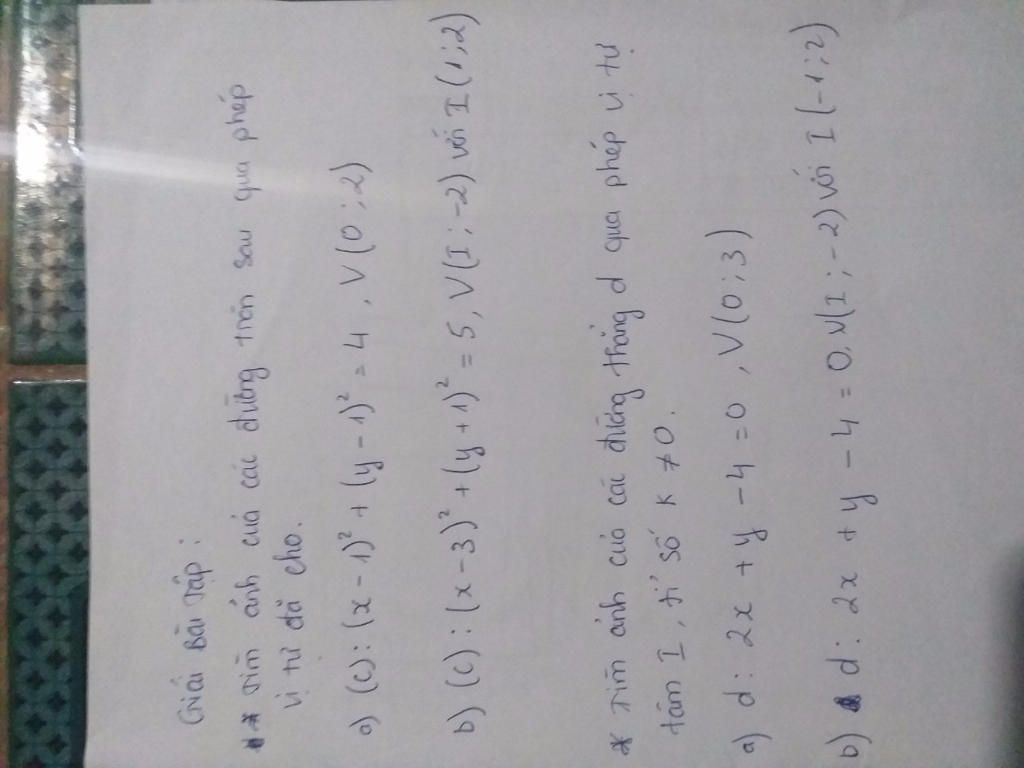 Giải Bài Tập:
* Tìm ảnh của các đường tròn sau qua phép
vị tự đã cho.
a) (C): (x - 1)² + (y - 1)² = 4, V(O; 2)
b) (C): (x - 3)² + (y + 1)² = 5, V(I; -2) với I(1; 2)
* Tìm ảnh của các đường thẳng d qua phép vị tự
tâm I, tỉ số K ≠ 0.
a) d: 2x + y - 4 = 0, V(O; 3)
b) d: 2x + y - 4 = 0, V(I; -2) với I(-1; 2)